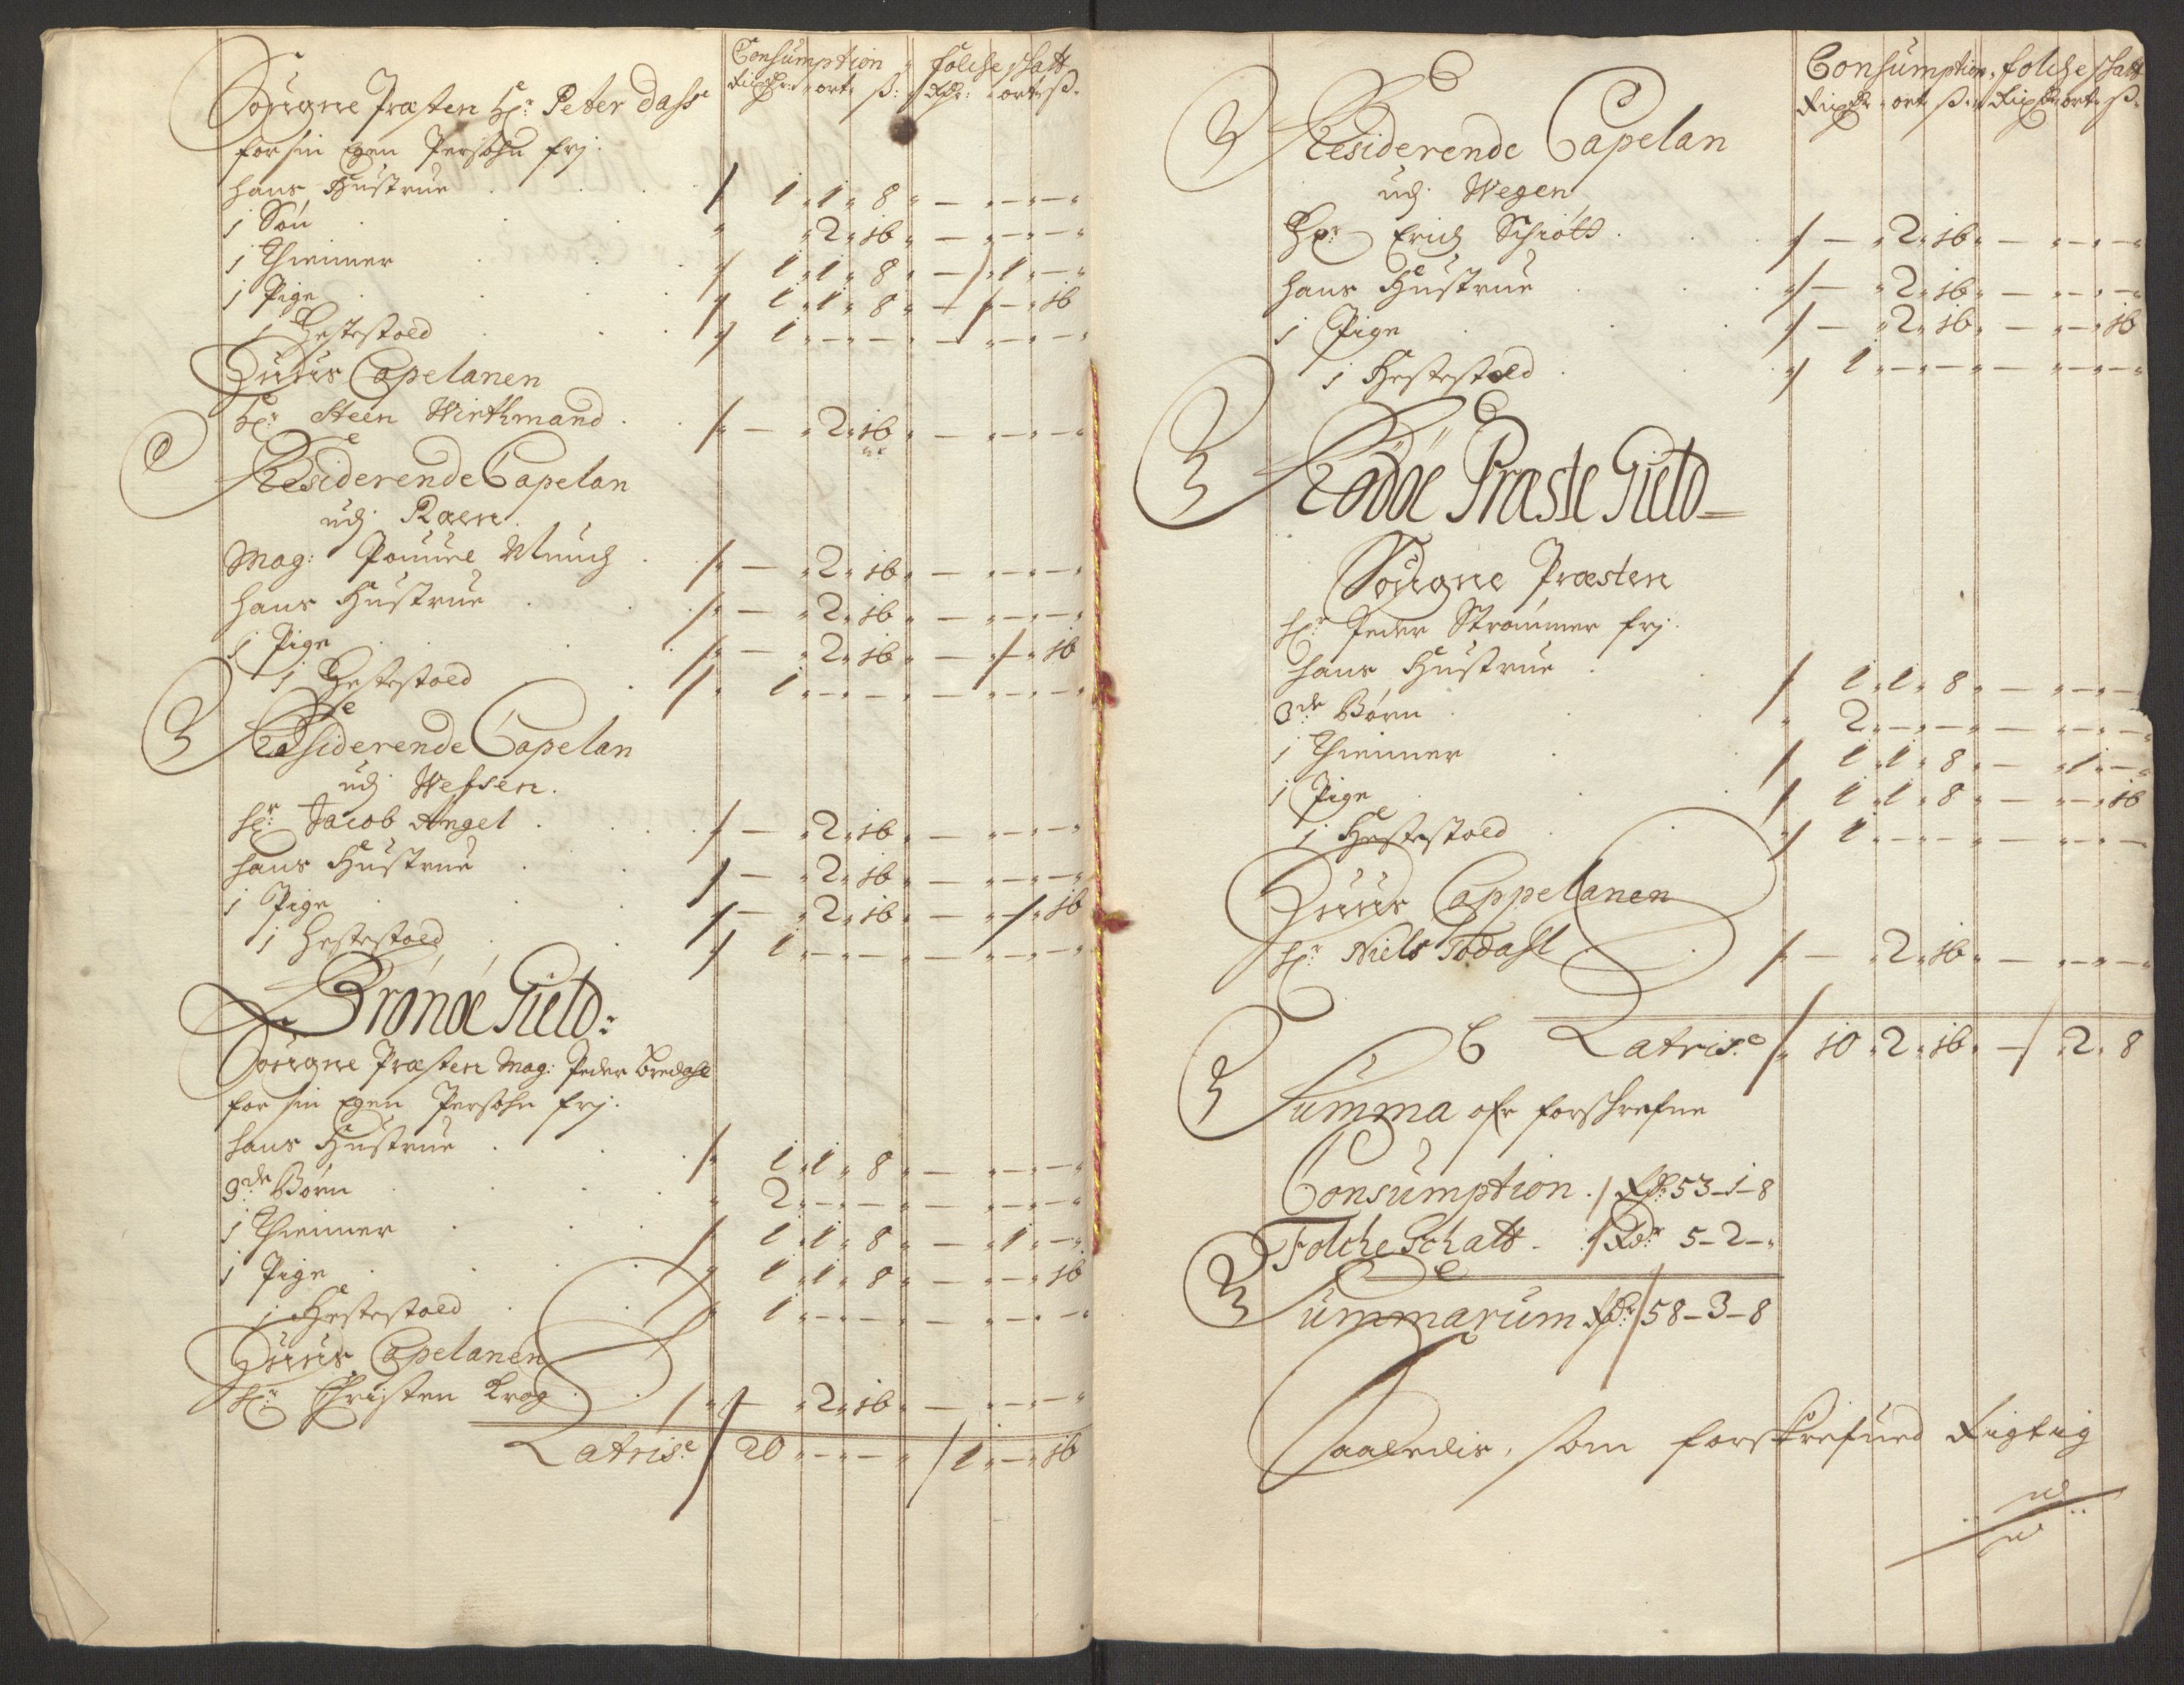 Consumption Folcheschatt
Rixdr: ort ß: Rdr: ort ß.
Sougne Præsten Hr: Peter Dass
for sin Egen Persohn frj.
hans Hustrue 1 1 8 — — — —
1 Søn 2 16 — — — —
1 Thienner 1 1 8 — 1 —
1 Pige 1 1 8 — — 16
1 Hestestoed 1 — — — — —
Huus Capelanen
Hr: Steen Wirthmand — 2 16 — — — —
Residerende Capelan
udj Raen.
Mag: Pouuel Munch — 2 16 — — — —
hans Hustrue — 2 16 — — — —
1 Pige — 2 16 — — 16
1 Hestestoed 1 — — — — —
Residerende Capelan
udj Wefsen.
Hr: Jacob Angel — 2 16 — — — —
hans Hustrue — 2 16 — — — —
1 Pige — 2 16 — — 16
1 Hestestoed 1 — — — — —
Brönöe Gield:
Sougne Præsten Mag: Peder Bredahl
for sin Egen Persohn frj.
hans Hustrue 1 1 8 — — — —
3de Børn 2 — — — — —
1 Thienner 1 1 8 — 1 —
1 Pige 1 1 8 — — 16
1 Hestestoed 1 — — — — —
Huus Capelanen
Hr: Christen Krog — 2 16 — — — —
Latris: 20 — — 1 — 16
Consumption, Folcheschatt
Rixdr ort ß. Rixdr ort ß.
Residerende Capelan
udj Wegen
Hr: Erich Schiött — 2 16 — — — —
hans Hustrue — 2 16 — — — —
1 Pige — 2 16 — — 16
1 Hestestoed 1 — — — — —
Rödöe Præste Gield
Sougne Præsten
Hr: Peder Strömmer frj.
hans Hustrue 1 1 8 — — — —
3de Børn 2 — — — — —
1 Thienner 1 1 8 — 1 —
1 Pige 1 1 8 — — 16
1 Hestestoed 1 — — — — —
Huus Cappelanen
Hr: Niels Todahl — 2 16 — — — —
Latris: 10 2 16 — 2 8
Summa ofr forschrefne
Consumption Rdr: 53-1-8
Folche Schatt Rdr: 5-2-
Summarum Rdr: 58-3-8
Saaledis, som forskrefued Rigtig